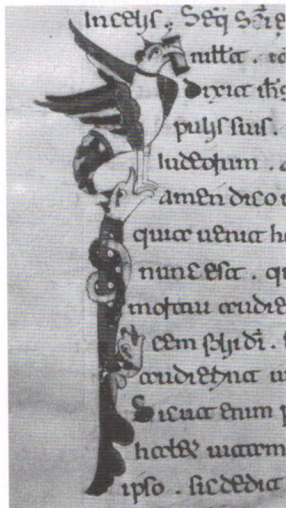 In celis. Seq̄ Sc̄i e
mitte. 
dixit ih̄s
pulis suis.
iudeorum.
amen dico u
quia uenit ho
nunc est. qu
mortui audie
cem filii dī.
audierint ui
Sicut enim p
habet uitam
ipso. sic dedit